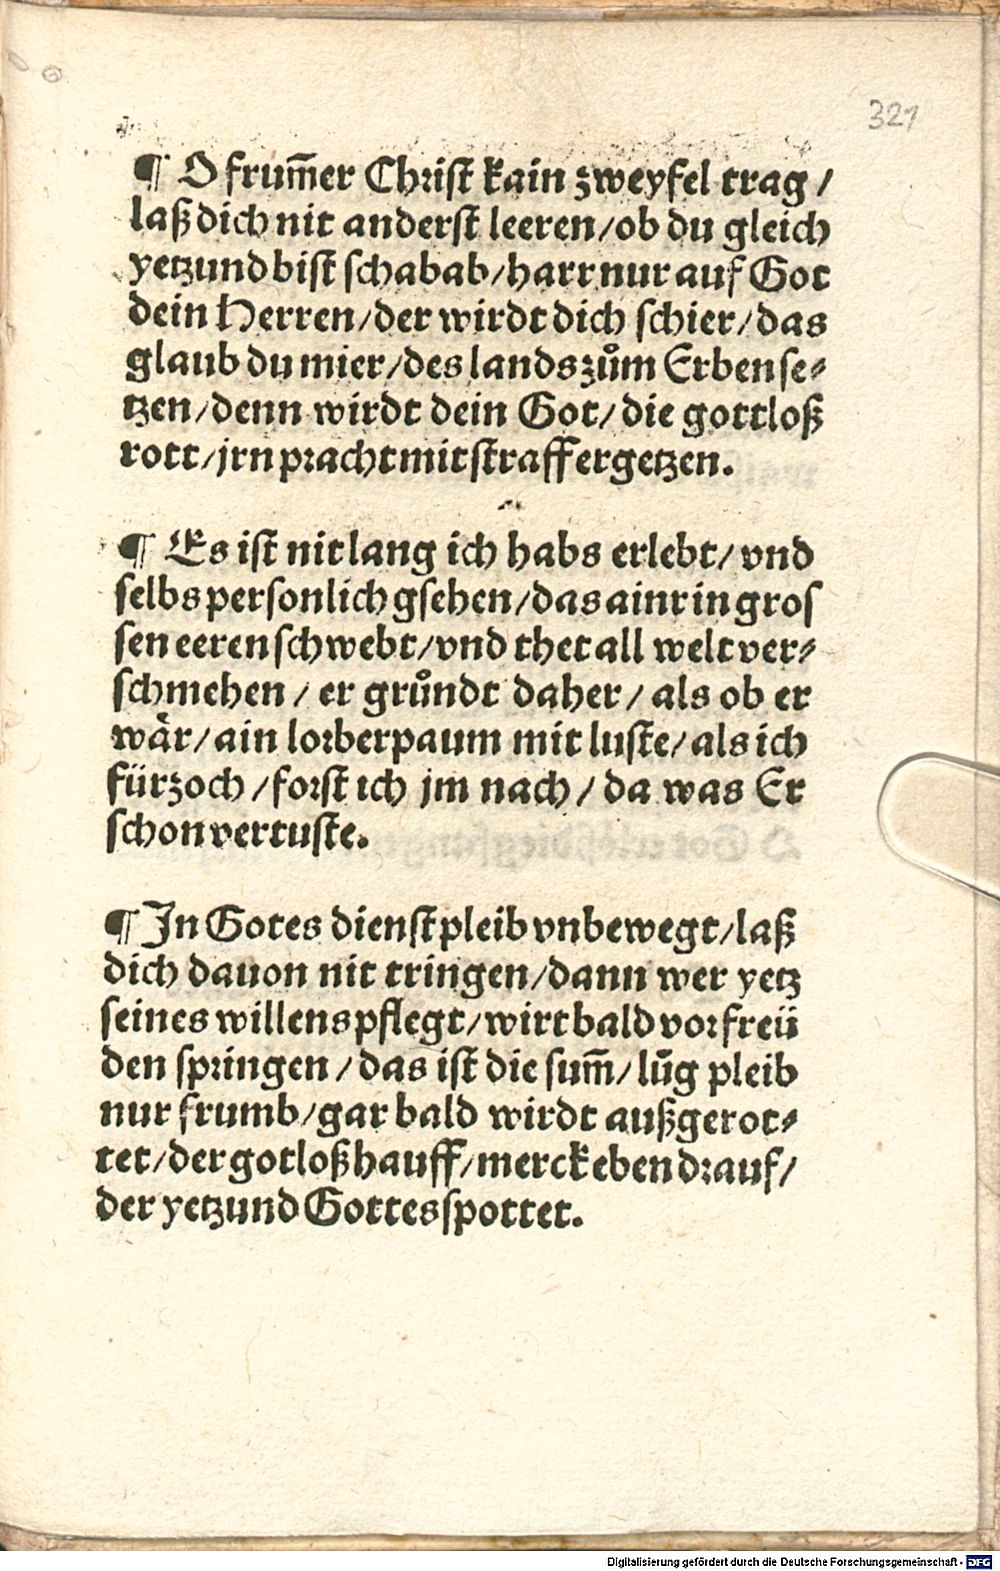 321
¶ O frum̃er Christ kain zweyfel trag /
laß dich nit anderst leeren / ob du gleich
yetzund bist schabab / harr nur auf Got
dein Herren / der wirdt dich schier / das
glaub du mier / des lands zům Erben se⸗
tzen / denn wirdt dein Got / die gottloß
rott / jrn pracht mit straff ergetzen.
¶ Es ist nit lang ich habs erlebt / vnd
selbs personlich gsehen / das ainr in gros
sen eeren schwebt / vnd thet all welt ver⸗
schmehen / er grůndt daher / als ob er
wår / ain lorberpaum mit luste / als ich
fürzoch / forst ich jm nach / da was Er
schon vertuste.
¶ In Gotes dienst pleib vnbewegt / laß
dich dauon nit tringen / dann wer yetz
seines willens pflegt / wirt bald vor freü
den springen / das ist die sum̃ / lůg pleib
nur frumb / gar bald wirdt außgerot⸗
tet / der gotloß hauff / merck eben drauf /
der yetzund Gottes spottet.
Digitalisierung gefördert durch die Deutsche Forschungsgemeinschaft - DFG